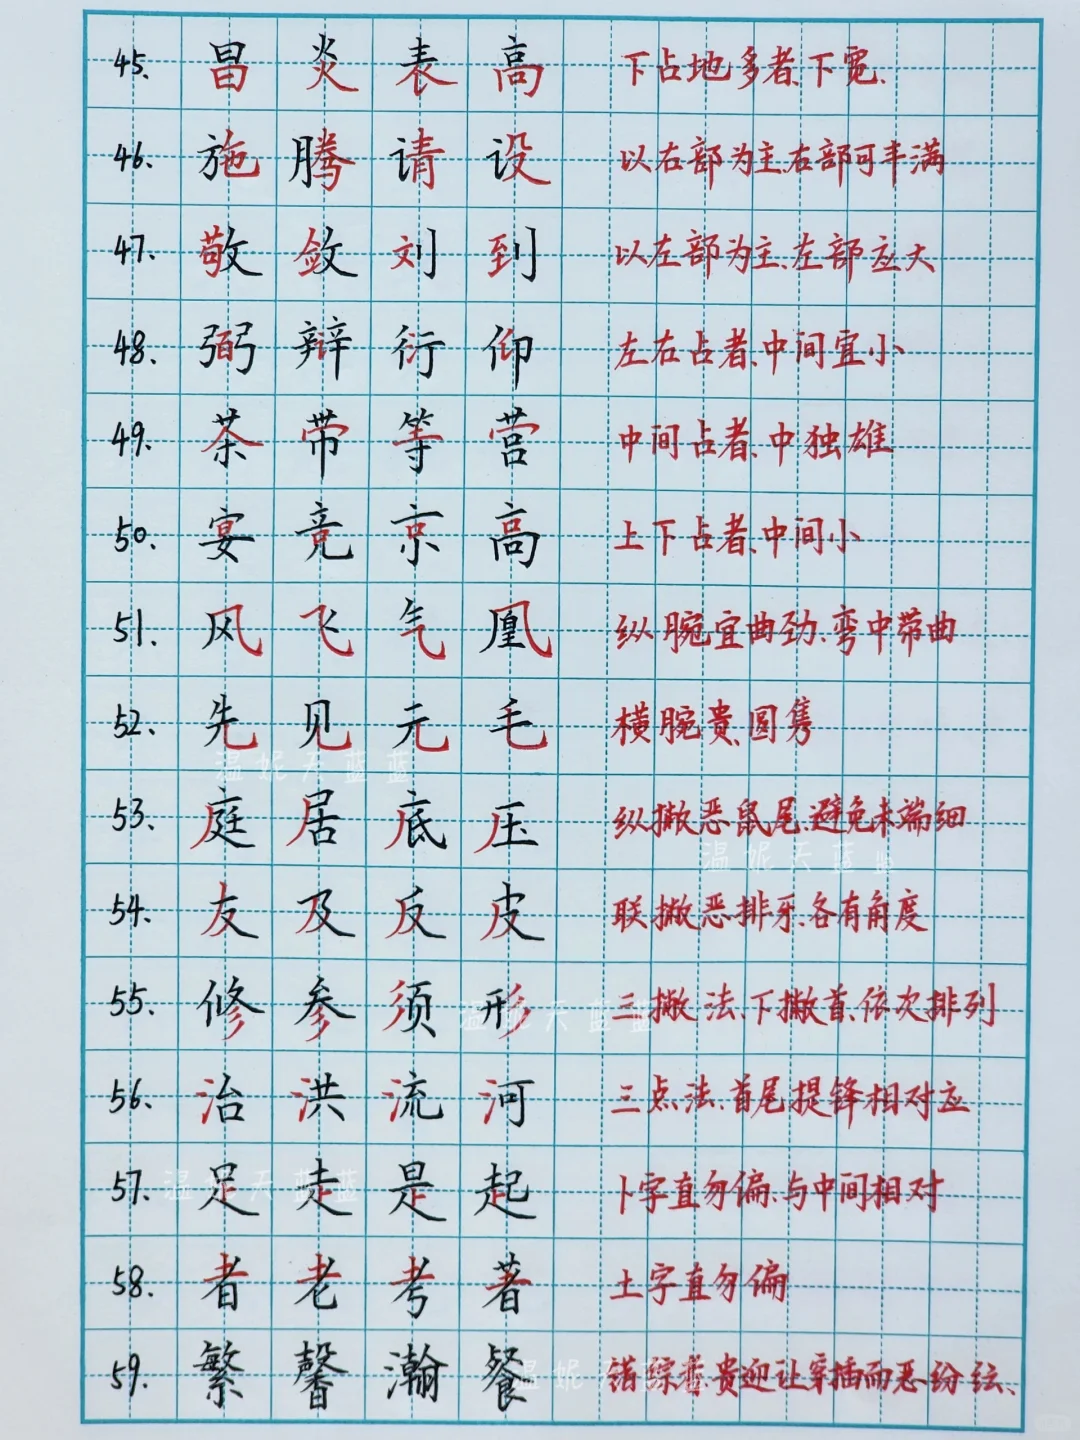 45. 昌 炎 表 高 下占地多者、下宽、
46. 施 腾 请 设 以右部为主、右部可丰满
47. 敬 敛 刘 到 以左部为主、左部应大
48. 弼 辩 衍 仰 左右占者、中间宜小
49. 茶 带 等 营 中间占者、中独雄
50. 宴 竞 京 高 上下占者、中间小
51. 风 飞 气 凰 纵腕宜曲劲、弯中带曲
52. 先 见 元 毛 横腕贵圆隽
温妮天蓝蓝
53. 庭 居 底 压 纵撇恶鼠尾、避免末端细
温妮天蓝
54. 友 及 反 皮 联撇恶排牙、各有角度
55. 修 参 须 形 三撇法、下撇首、依次排列
温妮天蓝蓝
56. 治 洪 流 河 三点法、首尾提锋相对应
57. 足 走 是 起 卜字直勿偏、与中间相对
温妮天蓝蓝
58. 者 老 考 著 土字直勿偏
59. 繁 馨 瀚 餐 错综贵迎让穿插而恶纷纭、
温妮天蓝蓝